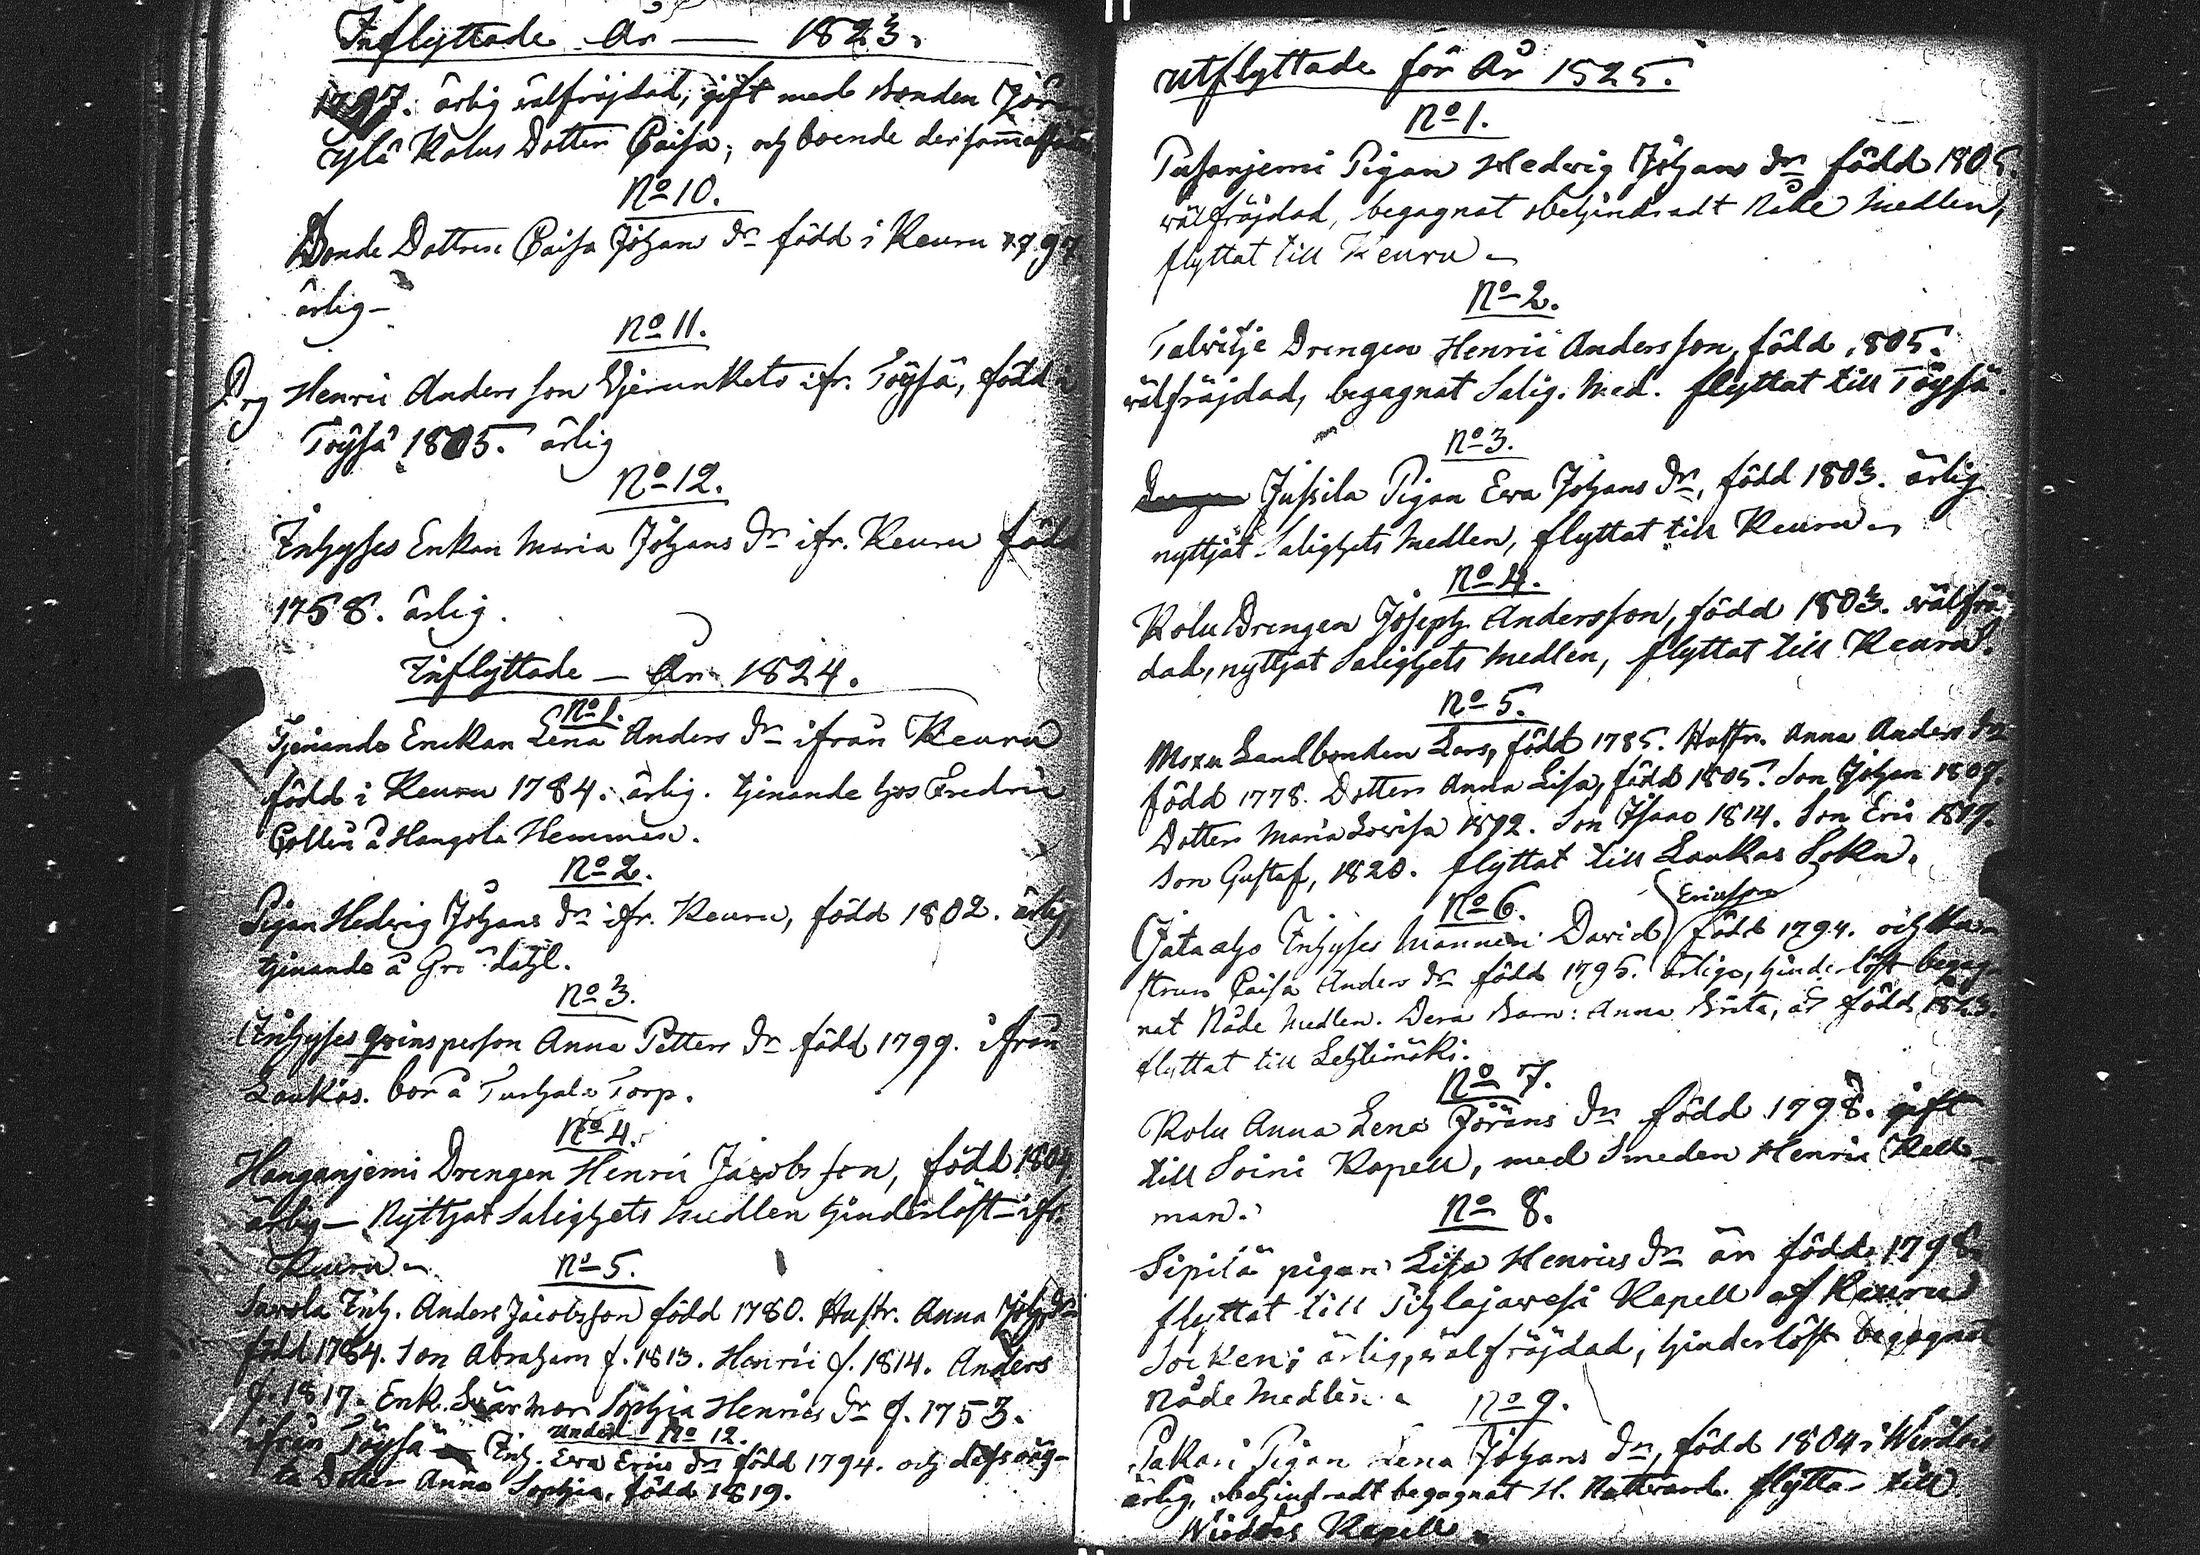 Inflyttade År — 1823.
1797. ärlig wälfräjdad, gift med Bonden Jör
Ylä Kolus Dotter Caisa, och boende der samastädes
No 10.
Bonde Dottren Caisa Johans Dr född i Keuru 1797
ärlig —
No 11.
Drg Henric Andersson ifr. Töysä, född i
Töysä 1805. ärlig
No 12.
Inhyses Enkan Maria Johans Dr ifr. Keuru född
1758. ärlig.
Inflyttade — År 1824.
No 1.
Tjenande Enckan Lena Anders Dr ifrån Keuru
född i Keuru 1784. ärlig. tjenande hos Fredric
Collin å Hangola Hemman.
No 2.
Pigan Hedvig Johans Dr ifr. Keuru, född 1802. ärlig,
tjenande å Gröndahl.
No 3.
Inhyses qvinsperson Anna Petters Dr född 1799. ifrån
Laukas. bor å Turhala Torp.
No 4.
Hanganjemi Drengen Henric Jacobsson, född 1804
ärlig — Nyttjat Salighets Medlen hinderlöst — ifr.
Keuru —
No 5.
Sarola Inh. Anders Jacobsson född 1780. Hustr. Anna Joh. Dr
född 1784. Son Abraham f. 1813. Henric f. 1814. Anders
f. 1817. Enk. Svärmor Sophia Henrics Dr f. 1753.
ifrån Töysä —
under No 12.
Inh. Eva Erics Dr född 1794. och dess oäg-
ta Dotter Anna Sophia, född 1819.
Utflyttade för År 1825.
No 1.
Pusanjemi Pigan Hedvig Johans Dr född 1805.
wälfräjdad, begagnat obehindradt Nåde Medlen,
flyttat till Keuru —
No 2.
Talvitje Drengen Henric Andersson, född 1805.
wälfräjdad, begagnat Salig. Med. flyttat till Töysä.
No 3.
Jussila Pigan Ewa Johans Dr, född 1803. ärlig
nyttjat Salighets Medlen, flyttat till Keuru —
No 4.
Kolu Drengen Joseph Andersson, född 1803. wälfrä
dad, nyttjat Salighets Medlen, flyttat till Keuru.
No 5.
Moxu Landbonden Lars, född 1785. Hustr. Anna Anders Dr
född 1778. Dotter Anna Lisa, född 1805. Son Johan 1807.
Dotter Maria Lovisa 1812. Son Isaac 1814. Son Eric 1817.
Son Gustaf, 1820. flyttat till Laukas Sokn.
No 6.
Ericsson
Inhyses Mannen David född 1794. och Hu-
strun Caisa Anders Dr född 1795. ärlige, hinderlöst begag-
nat Nåde Medlen. Dera Barn: Anna Brita, är född 1823.
flyttat till Lehtimäki.
No 7.
Kolu Anna Lena Jörans Dr född 1798. gift
till Soini Kapell, med Smeden Henric Kell-
man.
No 8.
Sipilä pigan Lisa Henrics Dr är född 1798.
flyttat till Pihlajawesi Kapell af Keuru
Socken; ärlig, wälfräjdad, hinderlöst begagnat
Nåde Medlen.
No 9.
Pakari Pigan Lena Johans Dr, född 1804 i Wirdois
ärlig, obehindradt begagnat H. Nattward. flyttat till
Wirdois Kapell.